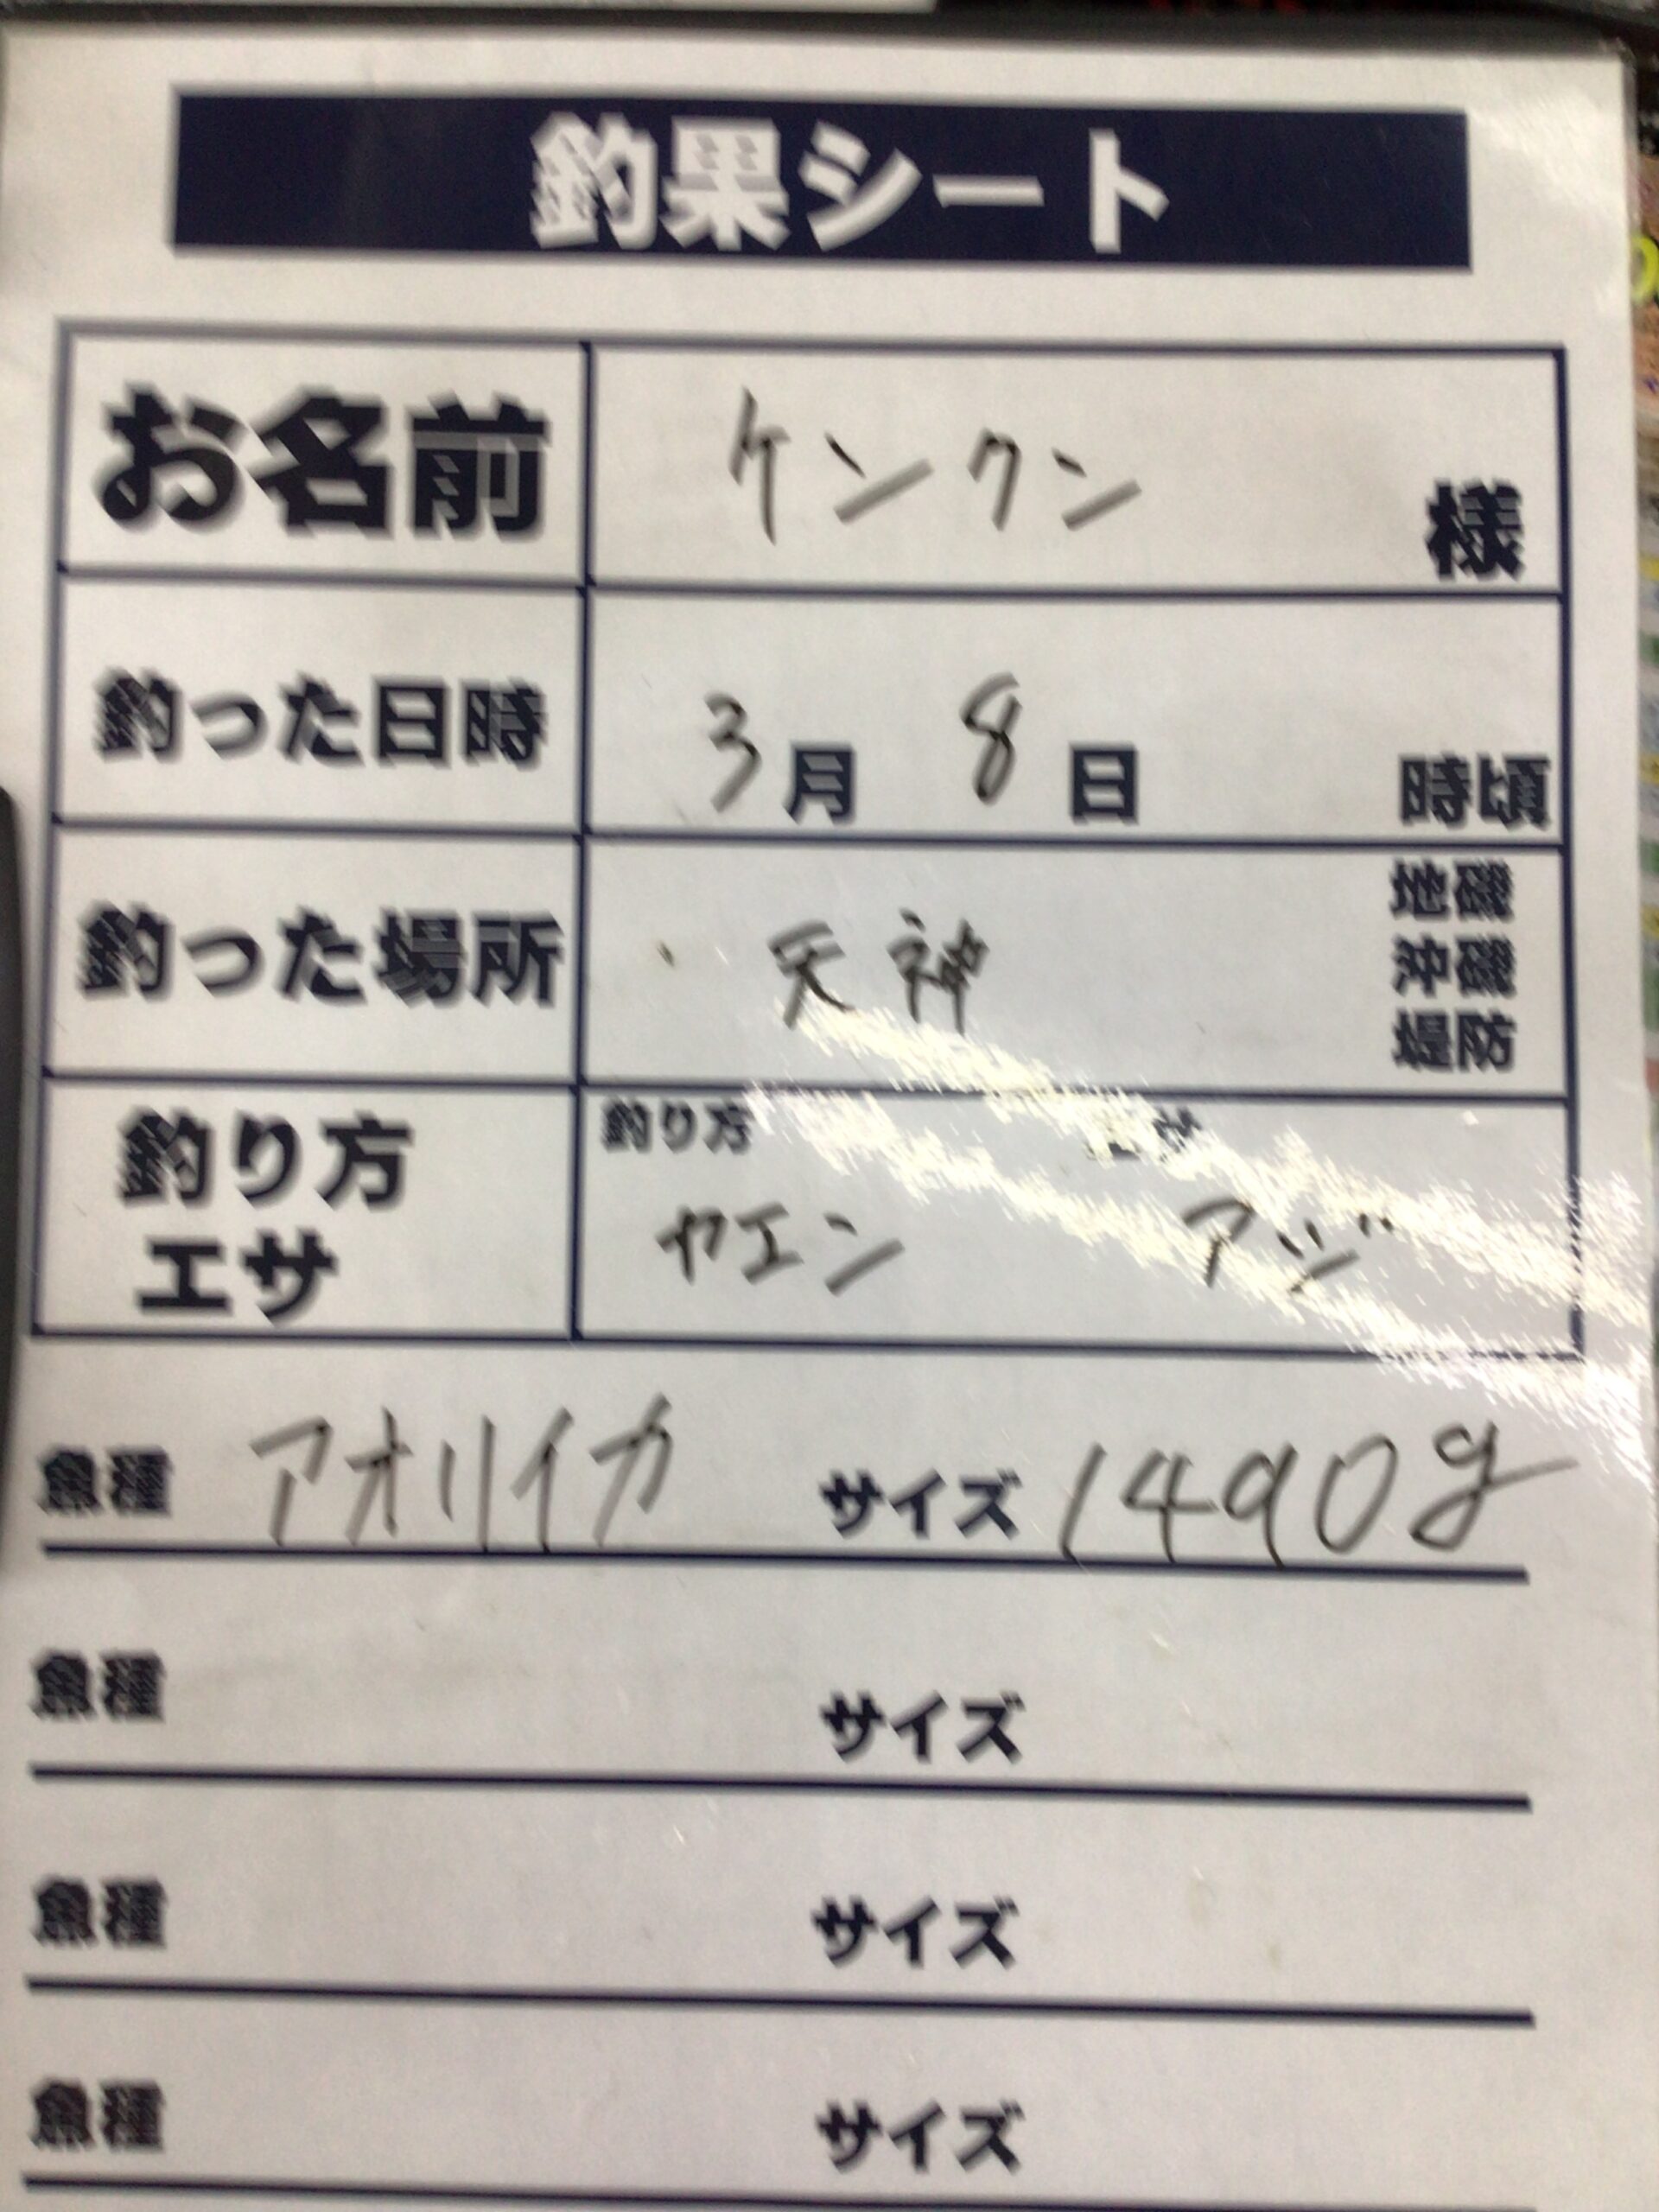 釣果シート
お名前 ケンクン 様
釣った日時 3月 8日 時頃
釣った場所 天神 地磯
沖磯
堤防
釣り方 エサ
釣り方 エサ
ヤエン アジ
魚種 アオリイカ サイズ 1490g
魚種 サイズ
魚種 サイズ
魚種 サイズ